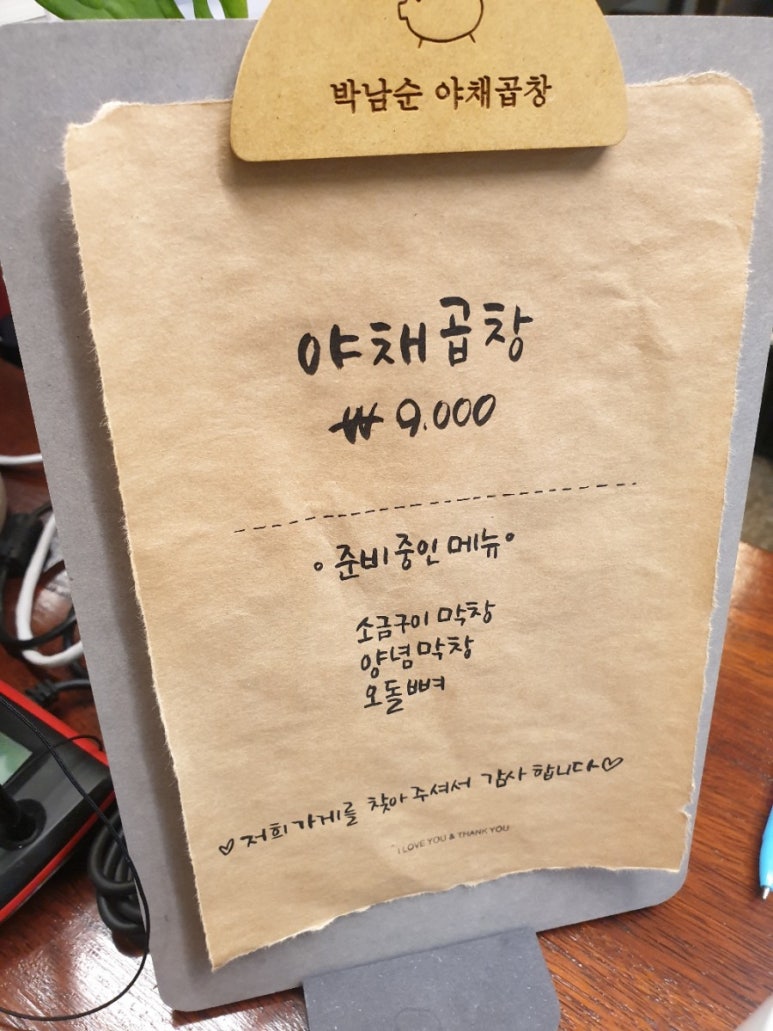 박남순 야채곱창
야채곱창
₩ 9.000
◦ 준비중인 메뉴 ◦
소금구이 막창
양념막창
오돌뼈
♡ 저희가게를 찾아주셔서 감사합니다 ♡
I LOVE YOU & THANK YOU